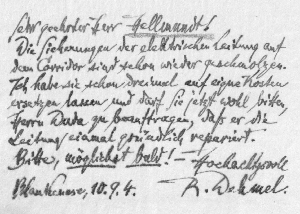 Sehr geehrter Herr Hellmundt!
Die Sicherungen der elektrischen Leitung auf
dem Corridor sind schon wieder geschmolzen.
Ich habe sie schon dreimal auf eigne Kosten
ersetzen lassen und darf Sie jetzt wohl bitten,
Herrn Duda zu beauftragen, daß er die
Leitung einmal gründlich repariert.
Bitte, möglichst bald! — Hochachtungsvoll
Blankenese, 10.9.4. R. Dehmel.